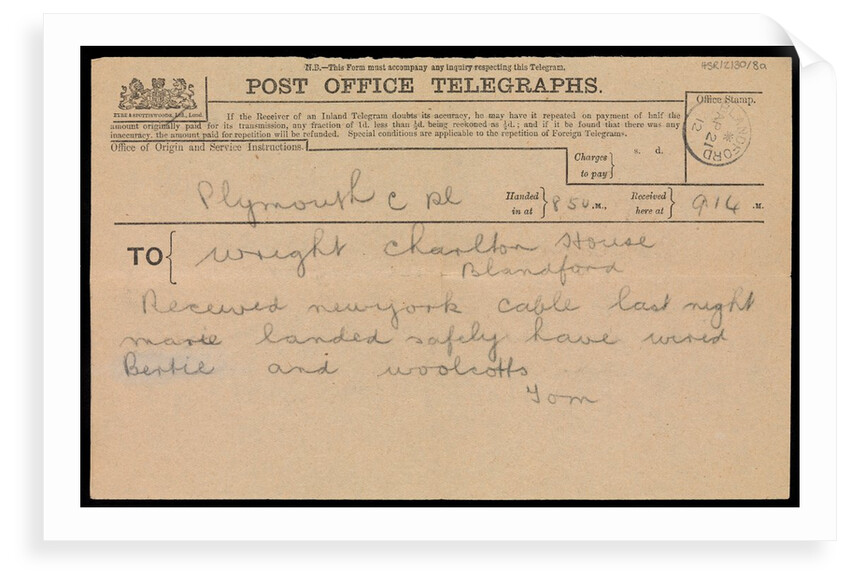 HSR/Z/30/8a
N.B.—This Form must accompany any inquiry respecting this Telegram.
POST OFFICE TELEGRAPHS.
EYRE & SPOTTISWOODE, Ltd., Lond.
If the Receiver of an Inland Telegram doubts its accuracy, he may have it repeated on payment of half the
amount originally paid for its transmission, any fraction of 1d. less than ½d. being reckoned as ½d.; and if it be found that there was any
inaccuracy, the amount paid for repetition will be refunded. Special conditions are applicable to the repetition of Foreign Telegrams.
Office Stamp.
BLANDFORD
AP 21
12
Office of Origin and Service Instructions.
Charges to pay } s. d.
Plymouth C Pl Handed in at } 8 50 .M., Received here at } 9.14 .M.
TO { Wright Charlton House
Blandford
Received newyork cable last night
marie landed safely have wired
Bertie and woolcotts
Tom